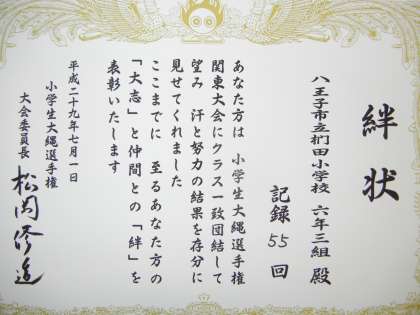 絆状
八王子市立椚田小学校 六年三組 殿
記録 55 回
あなた方は 小学生大縄選手権
関東大会にクラス一致団結して
望み 汗と努力の結果を存分に
見せてくれました
ここまでに 至るあなた方の
「大志」と仲間との「絆」を
表彰いたします
平成二十九年七月一日
小学生大縄選手権
大会委員長 松岡修造